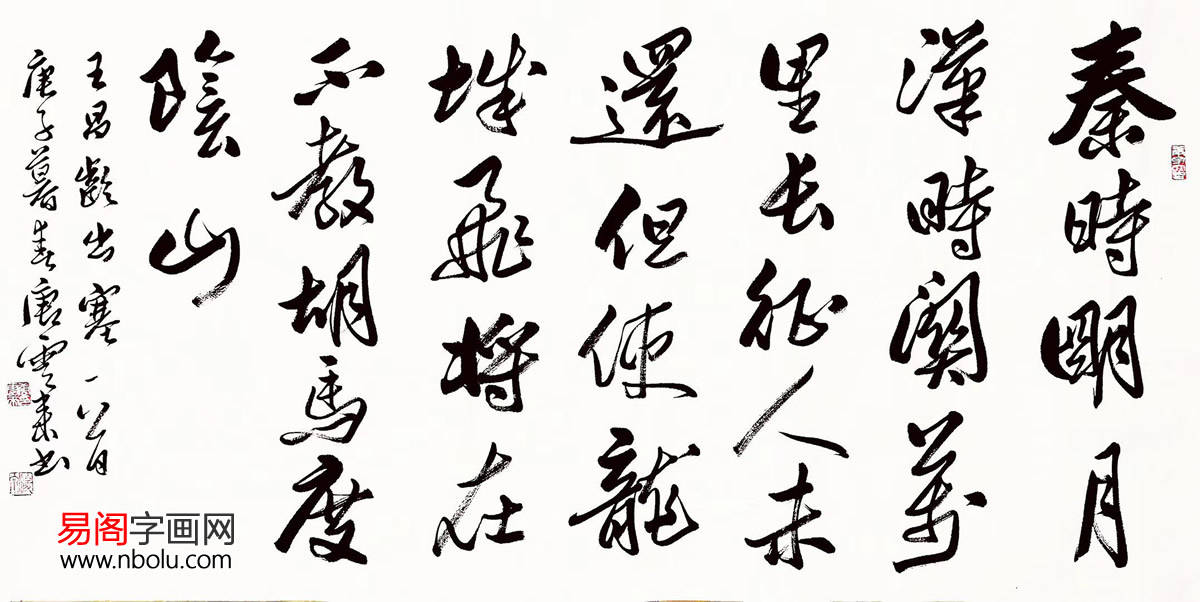 秦時明月
漢時關萬
里长征人未
還但使龍
城飛将在
不教胡馬度
陰山
王昌齡出塞一首
庚子暮春唐雲來书
易阁字画网
www.nbolu.com